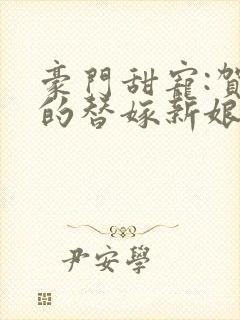 豪門甜寵:賀
的替嫁新娘
尹安學